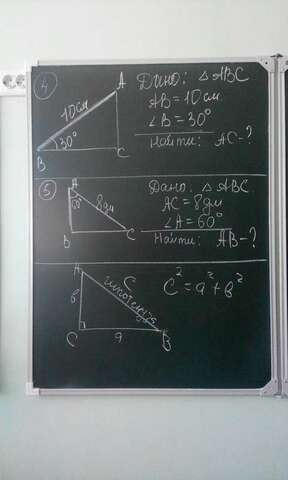 4
A
10 см
30°
B
C
Дано: △ABC
AB = 10 см
∠B = 30°
Найти: AC - ?
5
A
60°
8 дм
B
C
Дано: △ABC.
AC = 8 дм
∠A = 60°
Найти: AB - ?
A
C
гипотенуза
в
C
a
B
C² = a² + в²